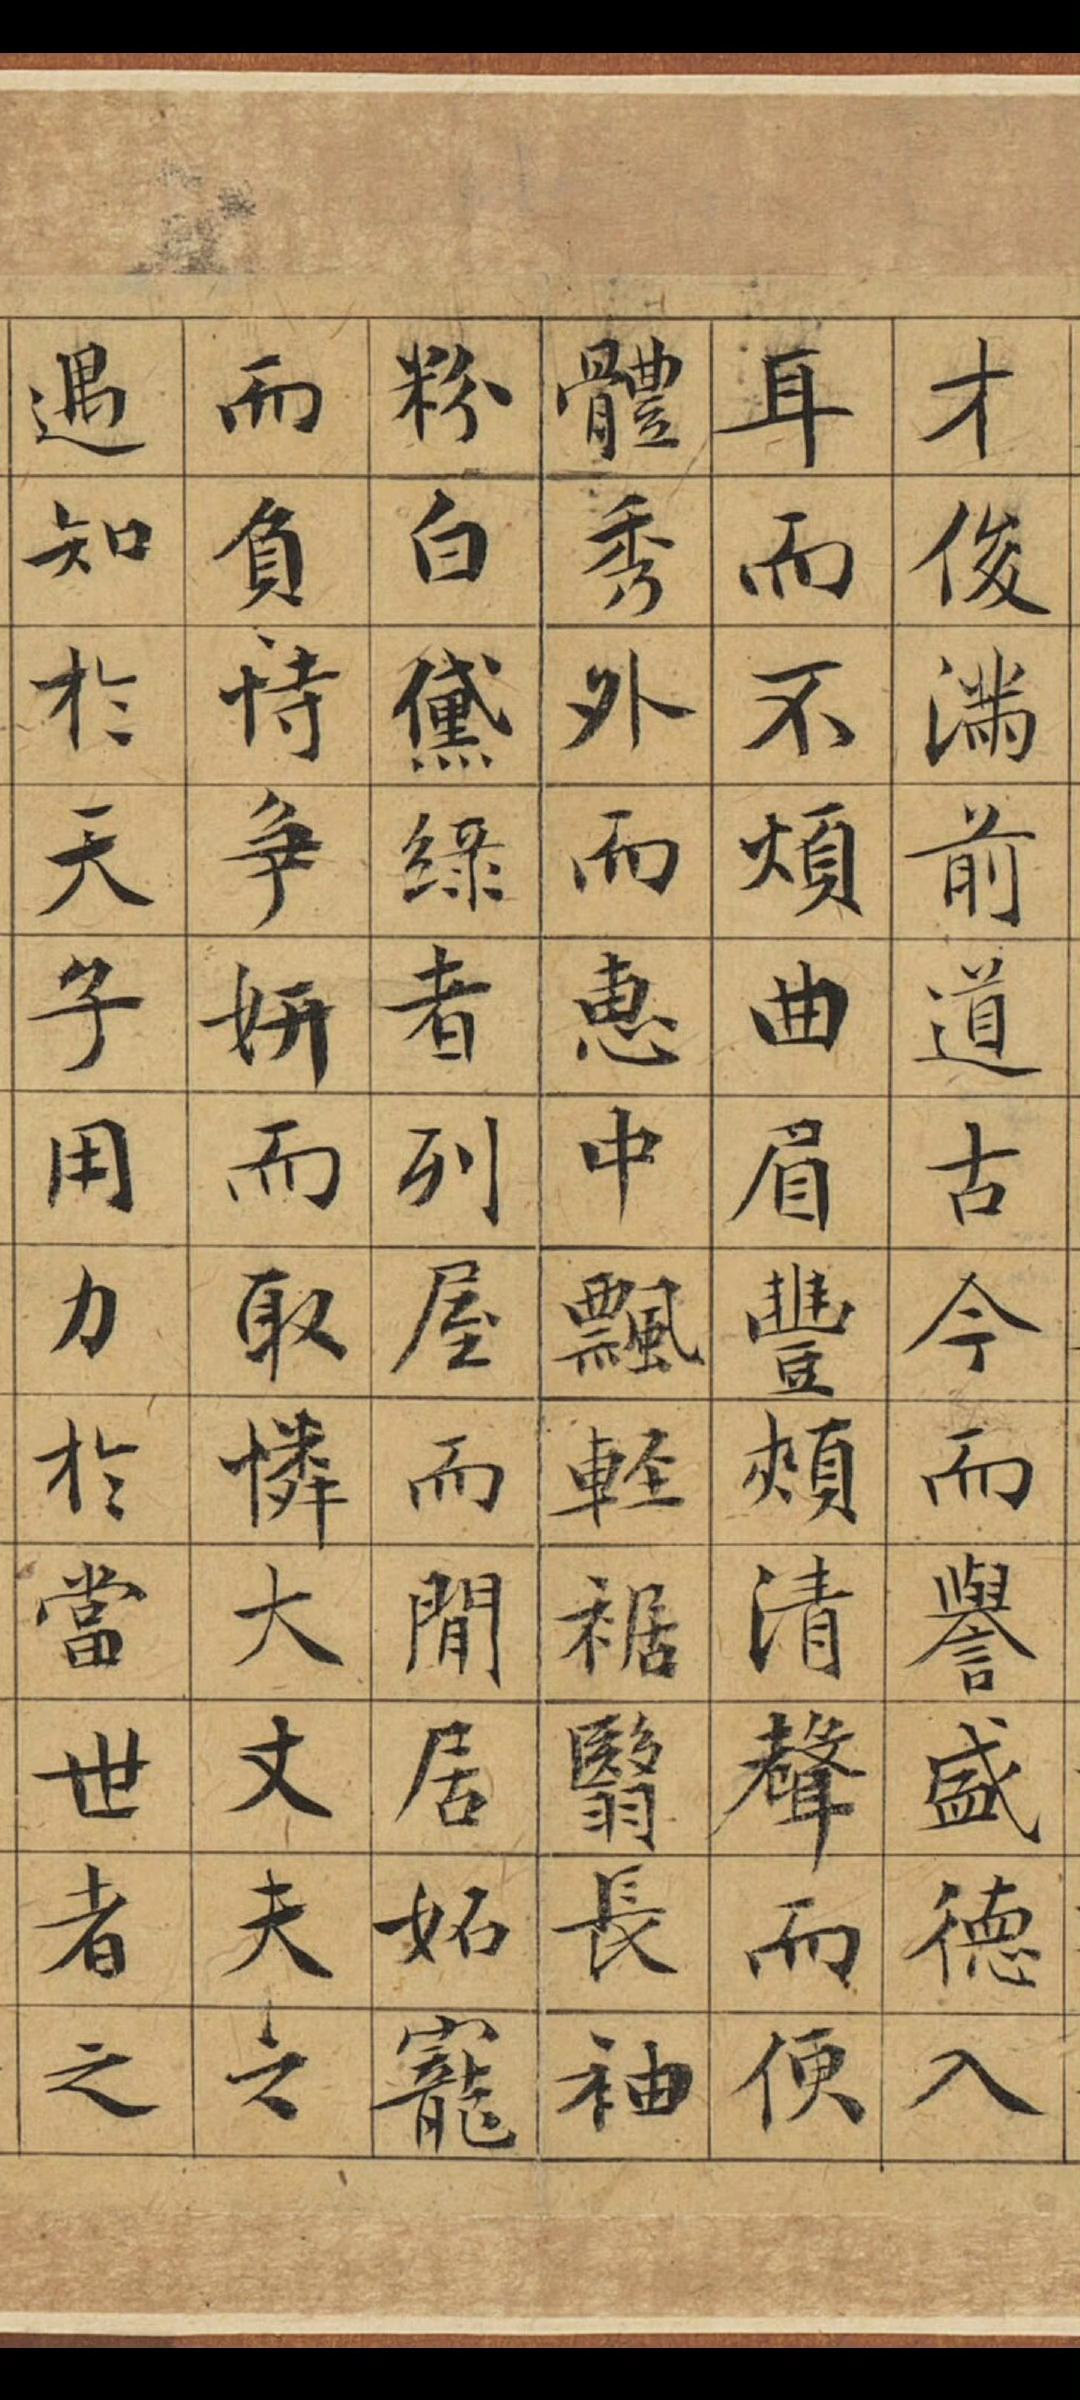 才俊滿前道古今而譽盛德入
耳而不煩曲眉豐頰清聲而便
體秀外而惠中飄輕裾翳長袖
粉白黛綠者列屋而閒居妬寵
而負恃爭妍而取憐大丈夫之
遇知於天子用力於當世者之